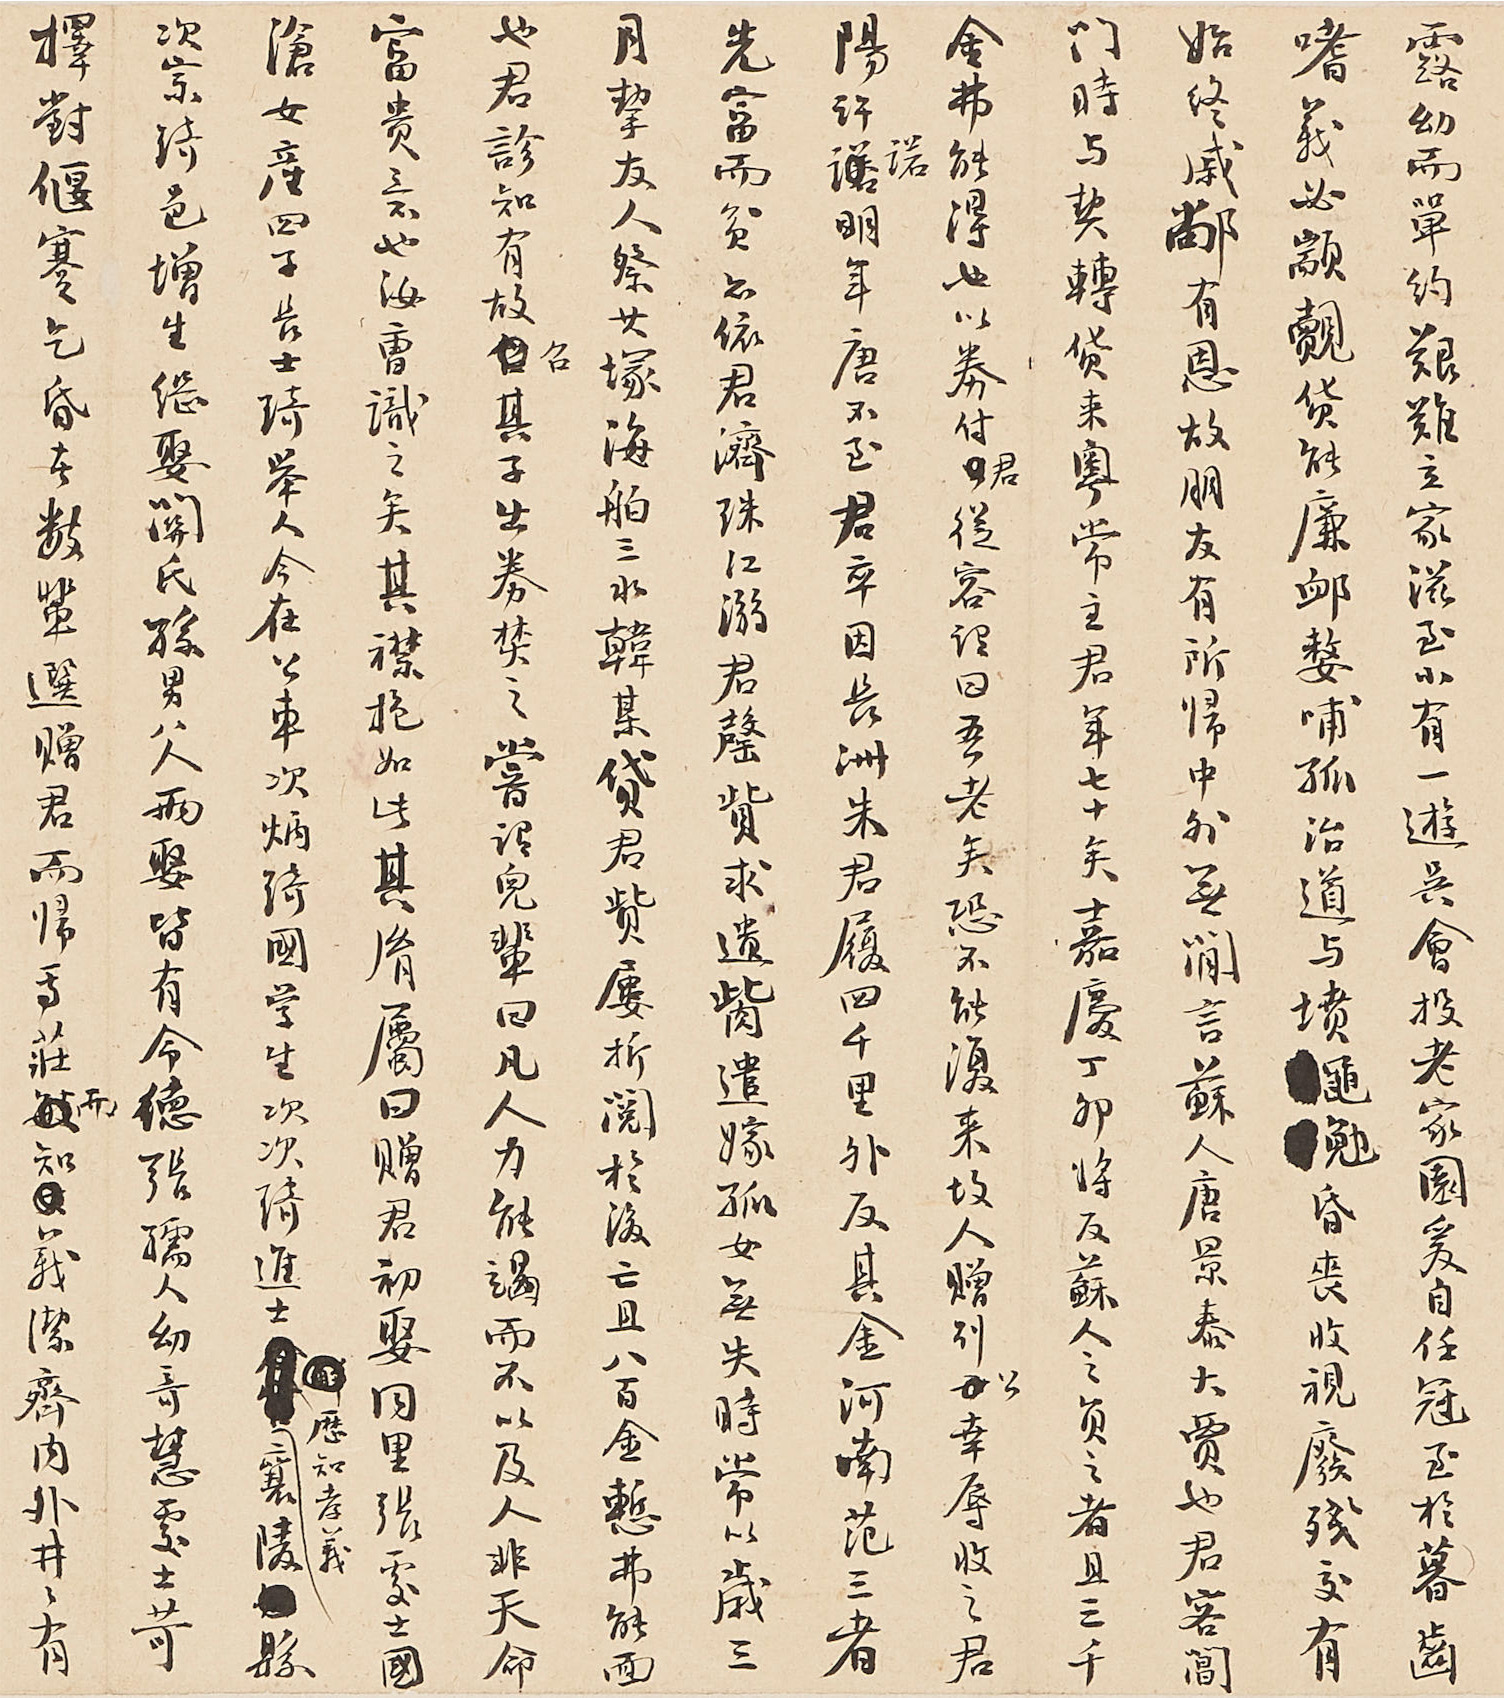 露幼而單約艱難立家滋至小有一遊吳會投老家園爰自任冠至於暮齒
嗜義必顓覿貨能廉卹嫠哺孤治道与墳黽勉昏喪收視廢殘交有
始終戚鄰有恩故朋友有所歸中外無間言蘇人唐景泰大賈也君客閶
门時与契轉貸来粵常主君年七十矣嘉慶丁卯將反蘇人之負之者且三千
金弗能得也以券付君從容謂曰吾老矣恐不能復来故人贈別以幸辱收之君
陽許諾明年唐不至君卒因長洲朱君履四千里外反其金河南范三者
先富而貧亦依君濟珠江溺君罄貲求遺胔遣嫁孤女無失時常以歲三
月挈友人祭其塚海舶三水韓某貸君貲屢折閱於後亡且八百金慙弗能面
也君診知有故召其子出券焚之嘗謂兒輩曰凡人力能謁而不以及人非天命
富貴意也汝曹識之矣其襟抱如此其屑屬曰贈君初娶同里張處士國
滄女產四子長士琦举人今在公車次炳琦國学生次次琦進士歷知孝義襄陵縣
次宗琦邑增生繼娶關氏孫男八人兩娶皆有令德張孺人幼奇慧處士苛
擇對偃蹇乞昏者數輩選贈君而帰焉莊而知義潔齊内外井〻有